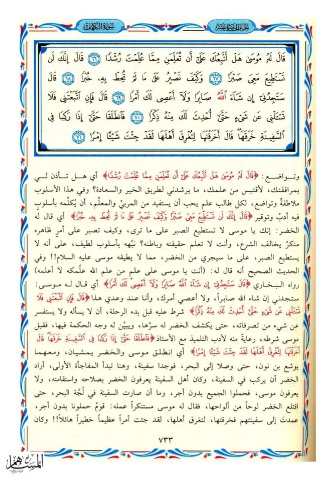 سورة الكهف
قَالَ لَهُ مُوسَىٰ هَلْ أَتَّبِعُكَ عَلَىٰ أَن تُعَلِّمَنِ مِمَّا عُلِّمْتَ رُشْدًا ﴿٦٦﴾ قَالَ إِنَّكَ لَن
تَسْتَطِيعَ مَعِيَ صَبْرًا ﴿٦٧﴾ وَكَيْفَ تَصْبِرُ عَلَىٰ مَا لَمْ تُحِطْ بِهِ خُبْرًا ﴿٦٨﴾ قَالَ
سَتَجِدُنِي إِن شَاءَ اللَّهُ صَابِرًا وَلَا أَعْصِي لَكَ أَمْرًا ﴿٦٩﴾ قَالَ فَإِنِ اتَّبَعْتَنِي فَلَا
تَسْأَلْنِي عَن شَيْءٍ حَتَّىٰ أُحْدِثَ لَكَ مِنْهُ ذِكْرًا ﴿٧٠﴾ فَانطَلَقَا حَتَّىٰ إِذَا رَكِبَا فِي
السَّفِينَةِ خَرَقَهَا قَالَ أَخَرَقْتَهَا لِتُغْرِقَ أَهْلَهَا لَقَدْ جِئْتَ شَيْئًا إِمْرًا ﴿٧١﴾
وتـواضـع: ﴿قَالَ لَهُ مُوسَىٰ هَلْ أَتَّبِعُكَ عَلَىٰ أَن تُعَلِّمَنِ مِمَّا عُلِّمْتَ رُشْدًا﴾ أي هـل تـأذن لـي
بمرافقتك، لأقتبس من علمك، ما يرشدني لطريق الخير والسعادة؟ وفي هذا الأسلوب
ملاطفةٌ وتواضع، لكل طالب علم يحب أن يستفيد من المربي والمعلّم، أن يُكلّمه بأسلوبٍ
فيه أدبٌ وتوقير ﴿قَالَ إِنَّكَ لَن تَسْتَطِيعَ مَعِيَ صَبْرًا وَكَيْفَ تَصْبِرُ عَلَىٰ مَا لَمْ تُحِطْ بِهِ خُبْرًا﴾ أي قال له
الخضر: إنك يا موسى لا تستطيع الصبر على ما ترى، وكيف تصبر على أمرٍ ظاهره
منكرٌ يخالف الشرع، وأنت لا تعلم حقيقته وباطنه؟ نبّهه بأسلوب لطيف، على أنه لا
يستطيع الصبر، على ما سيجري من الخضر، مما لا يطيقه موسى عليه السلام!! وفي
الحديث الصحيح أنه قال له: (أنت يا موسى على علمٍ من علم الله علّمكه لا أعلمه)
رواه البـخاري ﴿قَالَ سَتَجِدُنِي إِن شَاءَ اللَّهُ صَابِرًا وَلَا أَعْصِي لَكَ أَمْرًا﴾ أي قـال لـه مـوسـى:
ستجدني إن شاء الله صابراً، ولا أعصي أمرك، وأنا عند وعدي هذا ﴿قَالَ فَإِنِ اتَّبَعْتَنِي فَلَا
تَسْأَلْنِي عَن شَيْءٍ حَتَّىٰ أُحْدِثَ لَكَ مِنْهُ ذِكْرًا﴾ شرط عليه قبل بدء الرحلة، أن لا يسأله ولا يستفسر
عن شيء من تصرفاته، حتى يكشف الخضر له سرّها، ويبيّن له وجه الحكمة فيها، فقبل
موسى شرطه، رعايةً منه لأدب التلميذ مع الأستاذ ﴿فَانطَلَقَا حَتَّىٰ إِذَا رَكِبَا فِي السَّفِينَةِ خَرَقَهَا قَالَ
أَخَرَقْتَهَا لِتُغْرِقَ أَهْلَهَا لَقَدْ جِئْتَ شَيْئًا إِمْرًا﴾ أي انطلـق موسـى والخضـر يمشيـان، ومعهمـا
يوشع بن نون، حتى وصلا إلى البحر، فوجدا سفينة، وهنا تبدأ المفاجأة الأولى، أراد
الخضر أن يركب في السفينة، وكان أهل السفينة يعرفون الخضر بصلاحه واستقامته، ولا
يعرفون موسى، فحملوا الجميع بدون أجر، وما أن صارت السفينة في لُجّة البحر، حتى
اقتلع الخضر لوحاً من ألواحها، فقال له موسى مستنكراً عمله: قومٌ حملونا بدون أجر،
عمدتَ إلى سفينتهم فخرقتها، لتغرق أهلها، لقد جئت أمراً عظيماً خطيراً هائلاً!! وكان
٧٣٣